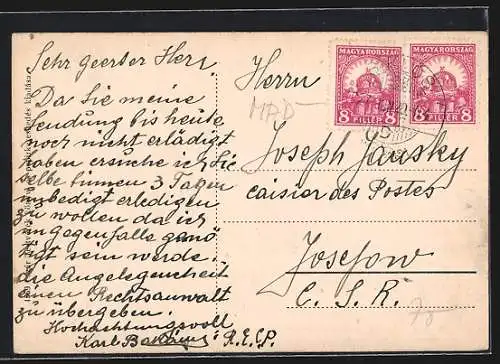 Sehr geerter Herr
Da Sie meine
Sendung bis heute
noch nicht erlädigt
haben ersuche ich Sie
selbe binnen 3 Tagen
unbedigt erledigen
zu wollen da ich
im gegenfalls genö
tigt sein werde
die Angelegenheit
einen Rechtsanwalt
zu übergeben.
Hochachtungsvoll
Karl
R.E.C.P.
MAGYARORSZÁG
8 FILLÉR 8
MAGYARORSZÁG
8 FILLÉR 8
Herrn
Joseph Jansky
caisior des Postes
Josefow
C. S. R.